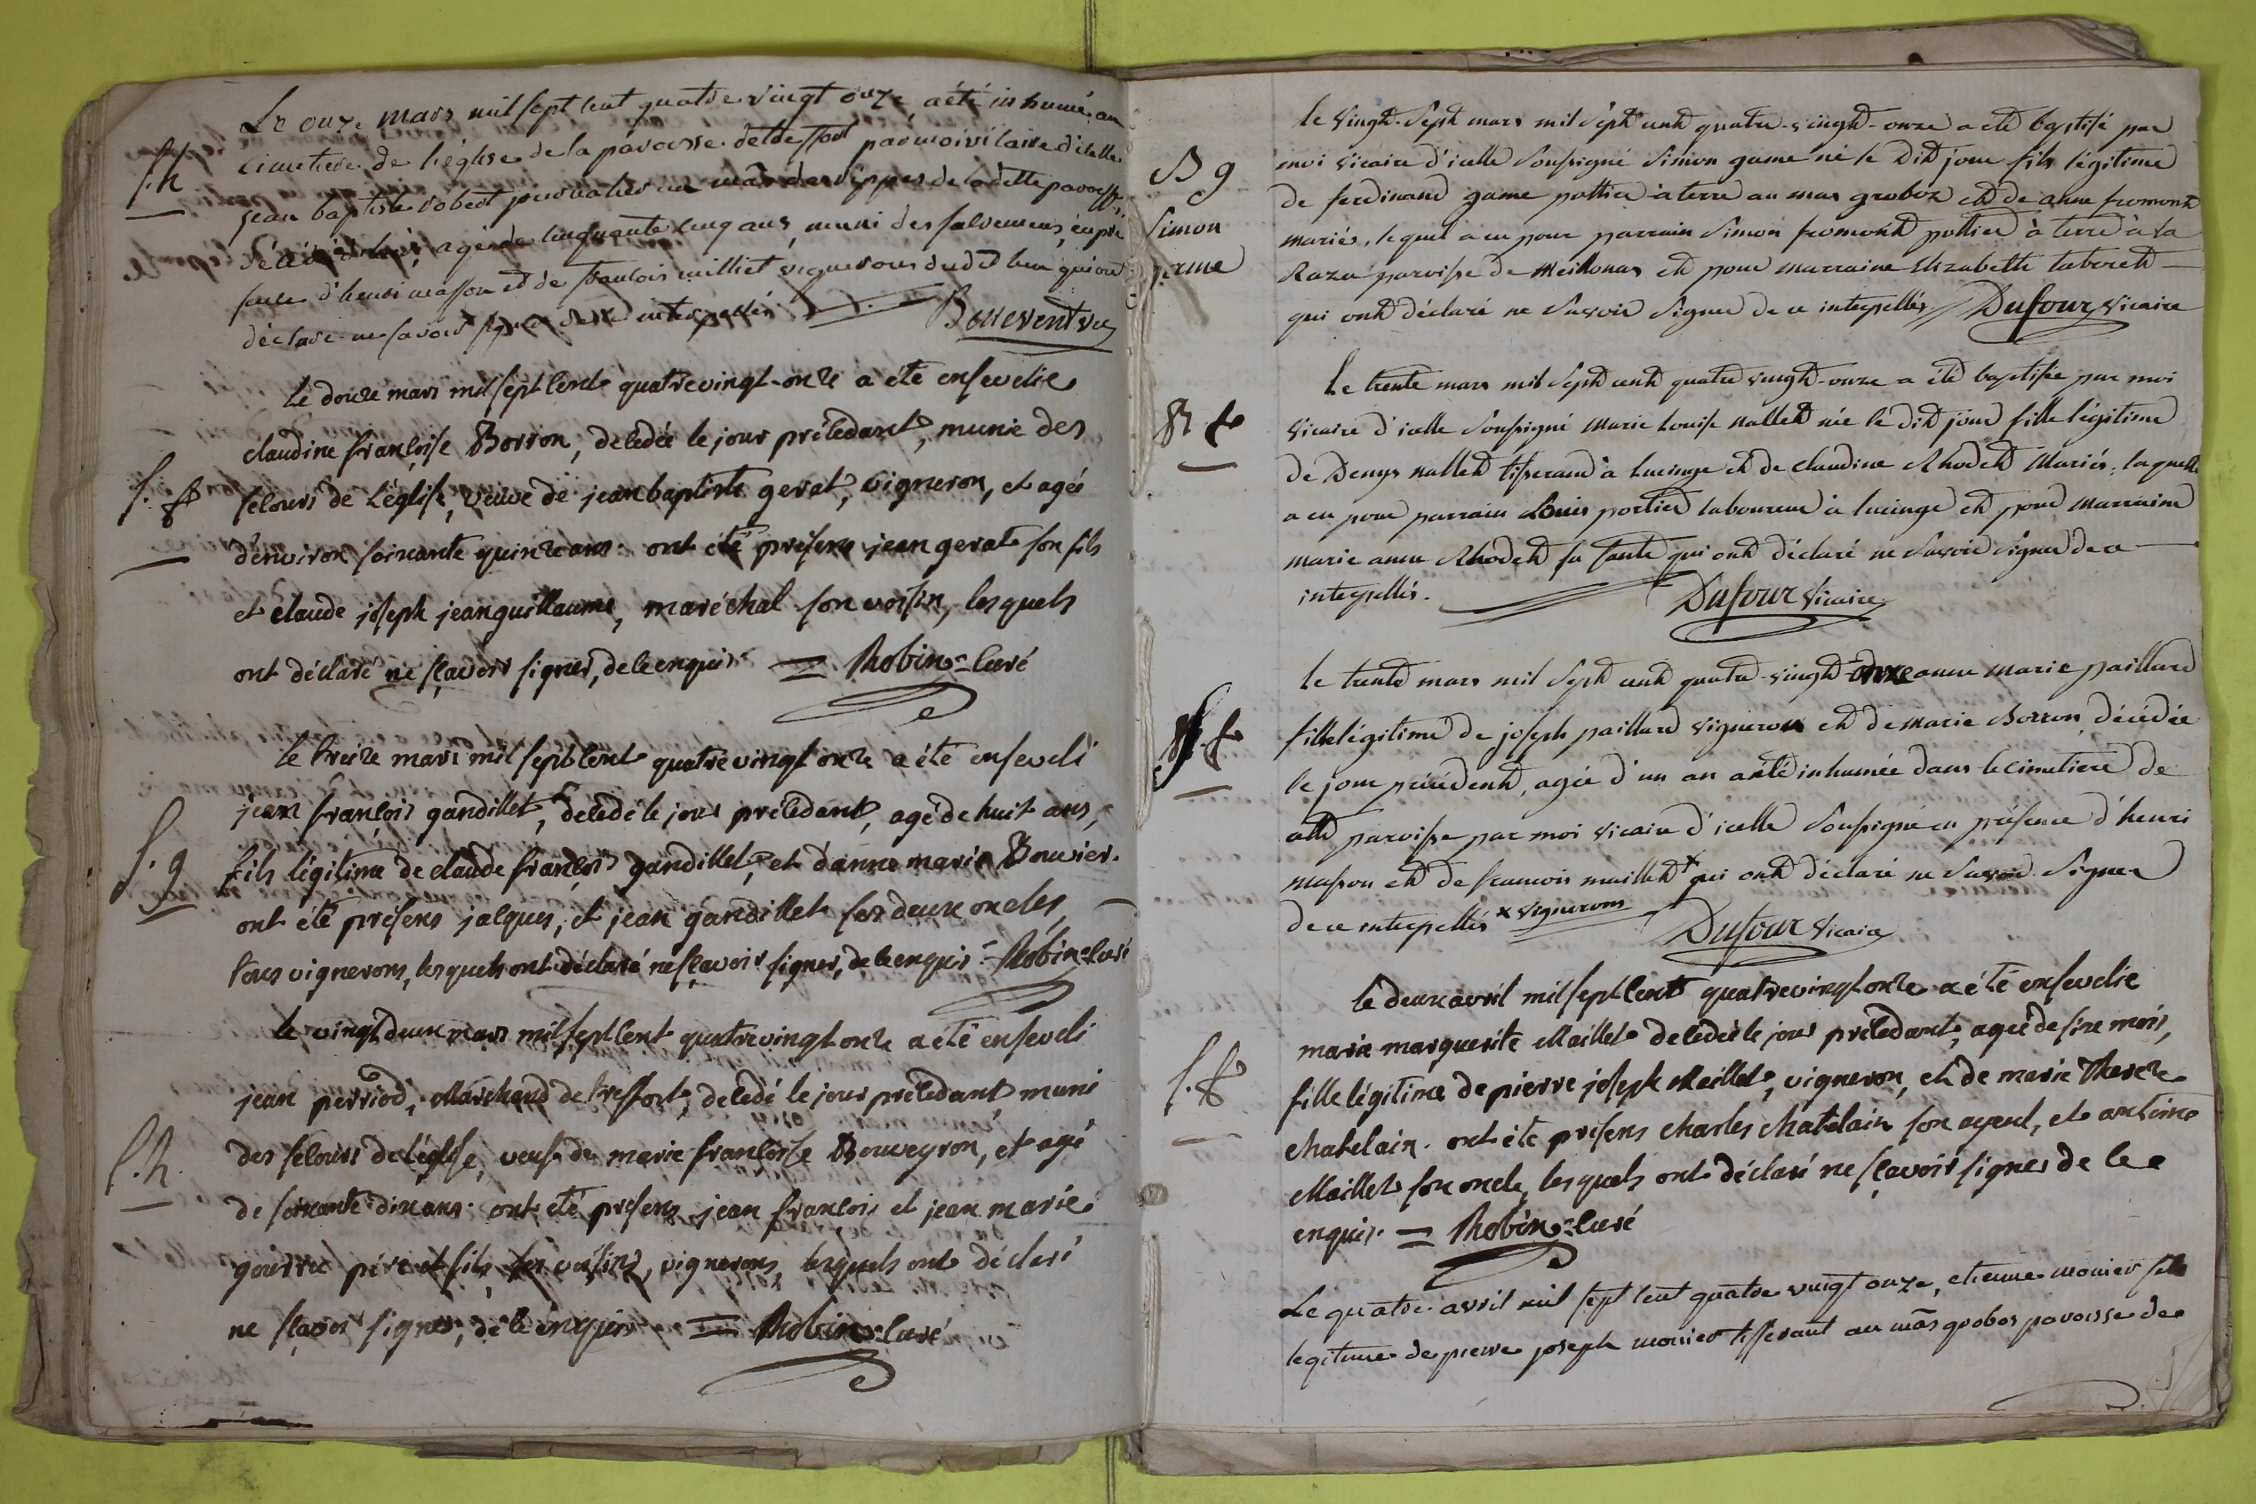 Le onze mars mil sept cent quatre vingt onze, a été inhumé, au
cimetiere de l'église de la paroisse de treffort par moi vicaire d'icelle
S. h
jean baptiste robert journalier au mas des dippes de la dette paroisse,
décédé agé de cinquante cinq ans, muni des sacremens, en pré
sence d'henri masson et de francois milliet vignerons dudt lieu qui ont
déclaré ne savoir signer de ce interpellés
Bonevent vic
Le douze mars mil sept cent quatrevingt-onze a été ensevelie
claudine françoise Borron, décédée le jour précédant, munie des
S. f
secours de l'église, veuve de jean baptiste gerat, vigneron, et agée
d'environ soixante quinze ans. ont été présens jean gerat son fils
et claude joseph jeanguillaume, maréchal son voisin, lesquels
ont déclaré ne sçavoir signer, de ce enquis = Robin-curé
Le treize mars mil sept cent quatrevingt onze a été enseveli
jean françois gandillet, décédé le jour précédant, agé de huit ans,
S. g
fils légitime de claude françois gandillet, et d'anne marie Bouvier.
ont été présens jacques, et jean gandillet ses deux oncles,
tous vignerons, lesquels ont déclaré ne sçavoir signer, de ce enquis = Robin-curé
Le vingt deux mars mil sept cent quatrevingt onze a été enseveli
jean perriod, Marchand de treffort, décédé le jour précédant muni
S. h.
des secours de l'église, veuf de marie françoise Bouveyron, et agé
de soixante dix ans. ont été présens jean françois et jean marie
gourru père et fils, ses voisins, vignerons, lesquels ont déclaré
ne sçavoir signer, de ce enquis = Robin-curé
le vingt-sept mars mil sept cent quatre-vingt-onze a été baptisé par
B g
Simon
game
moi vicaire d'icelle soussigné Simon game né le dit jour fils légitime
de ferdinand game pottier à terre au mas groboz et de anne fromont
mariés, lequel a eu pour parrain Simon fromont pottier à terre à la
Raza paroisse de Meillonas et pour marraine Elizabeth taboret
qui ont déclaré ne savoir signer de ce interpellés // Dufour vicaire
Le trente mars mil sept cent quatre vingt-onze a été baptisée par moi
B f
vicaire d'icelle soussigné marie louise nallet née le dit jour fille légitime
de Denys nallet tisserand à lucinge et de claudine Rhodet Mariés, laquelle
a eu pour parrain Louis portier laboureur à lucinge et pour marraine
marie anne Rhodet sa tante qui ont déclaré ne savoir signer de ce
interpellés.
Dufour vicaire
le trente mars mil sept cent quatre-vingt-onze anne marie paillard
S. f
fille légitime de joseph paillard vigneron et de marie Borron, décédée
le jour précédent, agée d'un an a été inhumée dans le cimetiere de
cette paroisse par moi vicaire d'icelle soussigné en présence d'henri
masson et de francois maillet x qui ont déclaré ne savoir signer
de ce interpellés x vignerons
Dufour vicaire
Le deux avril mil sept cent quatrevingt onze a été ensevelie
marie marguerite Maillet décédée le jour précédant, agée de six mois,
S. f
fille légitime de pierre joseph Maillet, vigneron, et de marie Therese
chatelain. ont été présens charles chatelain son ayeul, et antoine
Maillet son oncle, lesquels ont déclaré ne sçavoir signer de ce
enquis. = Robin-curé
Le quatre avril mil sept cent quatre vingt onze, etienne monier fils
legitime de pierre joseph monier tisserant au mas grobos paroisse de